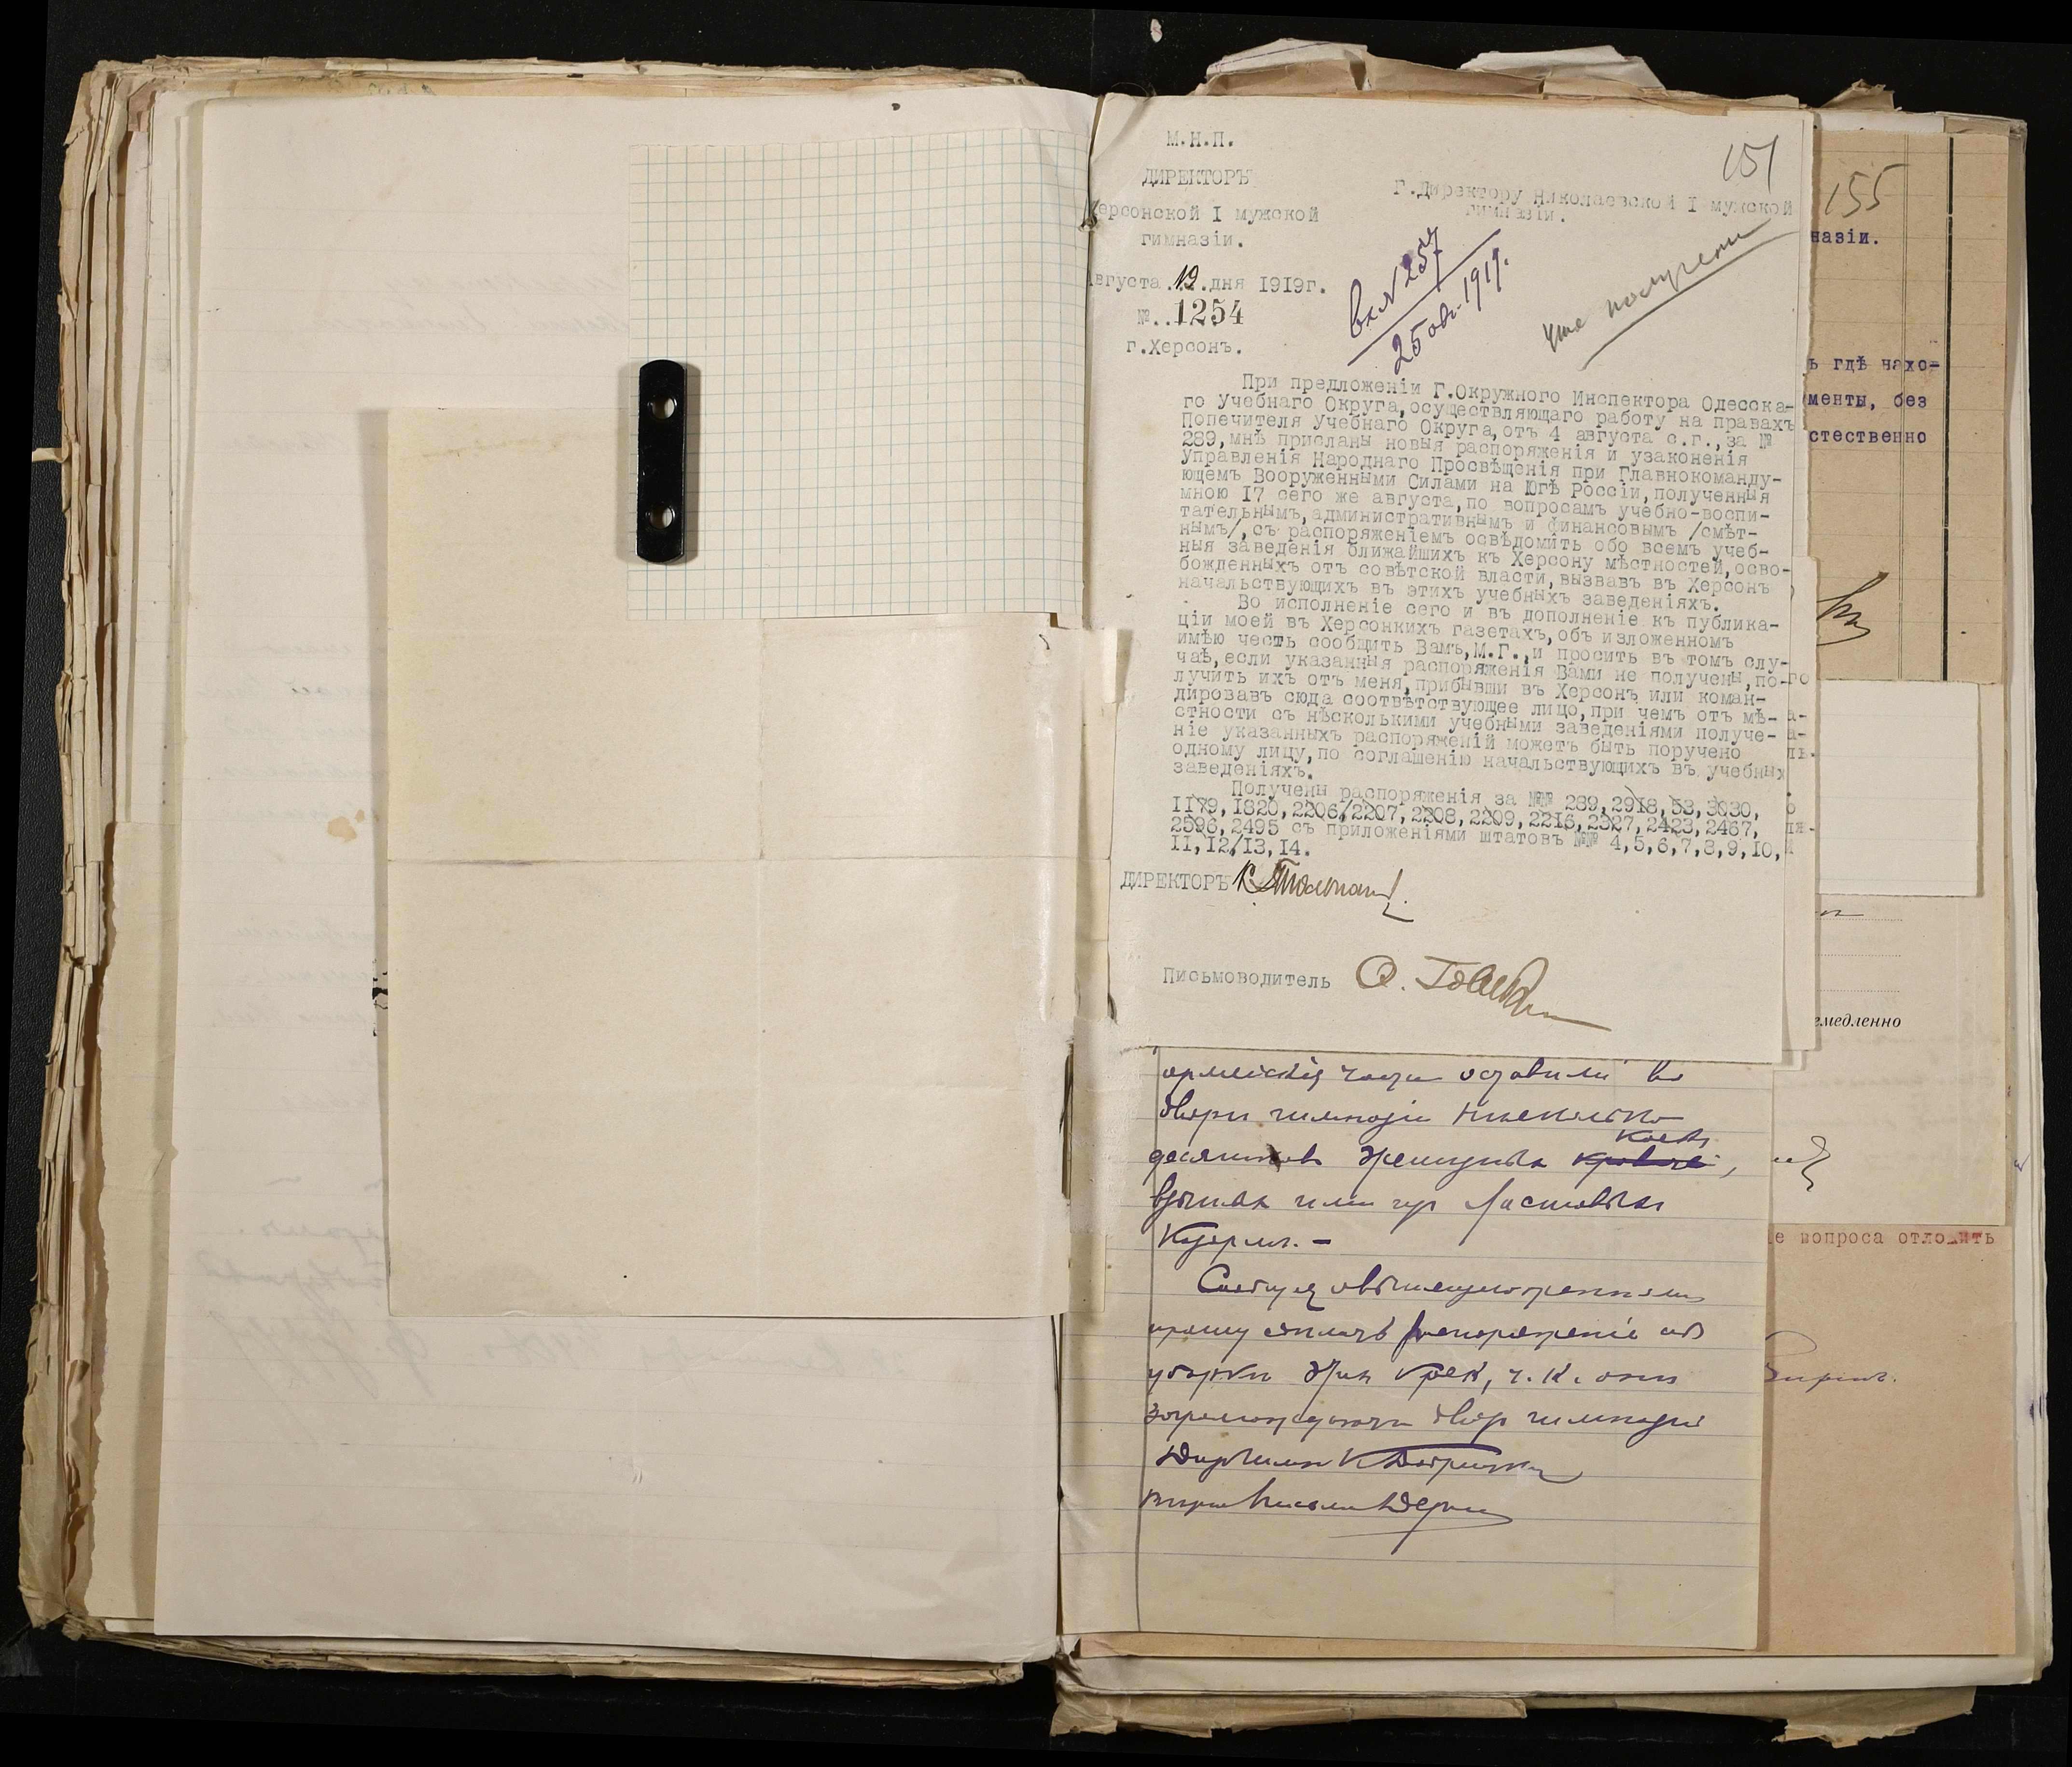 М.Н.П.
ДИРЕКТОРЪ
Херсонской I мужской
гимназіи.
Августа 19 дня 1919г.
№..1254
г.Херсонъ.
151
Г.Директору Николаевской I мужской
гимназіи.
Вх. № 257
25 авг. 1919.
уже получены
При предложеніи Г.Окружного Инспектора Одесска-
го Учебнаго Округа,осуществляющаго работу на правахъ
Попечителя Учебнаго Округа,отъ 4 августа с.г.,за №
289,мнѣ присланы новыя распоряженія и узаконенія
Управленія Народнаго Просвѣщенія при Главнокоманду-
ющемъ Вооруженными Силами на Югѣ Россіи,полученныя
мною 17 сего же августа,по вопросамъ учебно-воспи-
тательнымъ,административнымъ и финансовымъ /смѣт-
нымъ/,съ распоряженіемъ освѣдомить обо всемъ учеб-
ныя заведенія ближайшихъ къ Херсону мѣстностей,осво-
божденныхъ отъ совѣтской власти,вызвавъ въ Херсонъ
начальствующихъ въ этихъ учебныхъ заведеніяхъ.
Во исполненіе сего и въ дополненіе къ публика-
ціи моей въ Херсонкихъ газетахъ,объ изложенномъ
имѣю честь сообщить Вамъ,М.Г.,и просить въ томъ слу-
чаѣ,если указанныя распоряженія Вами не получены,по-
лучить ихъ отъ меня,прибывши въ Херсонъ или коман-
дировавъ сюда соотвѣтствующее лицо,при чемъ отъ мѣ-
стности съ нѣсколькими учебными заведеніями получе-
ніе указанныхъ распоряженій можетъ быть поручено
одному лицу,по соглашенію начальствующихъ въ учебныхъ
заведеніяхъ.
Получены распоряженія за №№ 289,2918,53,3030,
1179,1820,2206/2207,2208,2209,2216,2327,2423,2467,
2596,2495 съ приложеніями штатовъ №№ 4,5,6,7,8,9,10,
11,12/13,14.
ДИРЕКТОРЪ
Письмоводитель
армейскія части оставили во
дворѣ гимназіи нѣсколько
десятковъ
или
прошу сдѣлать распоряженіе объ
уборкѣ т.к. они
загромождаютъ дворъ гимназіи
155
назіи.
ъ гдѣ нахо-
менты, без
стественно
емедленно
е вопроса отложить